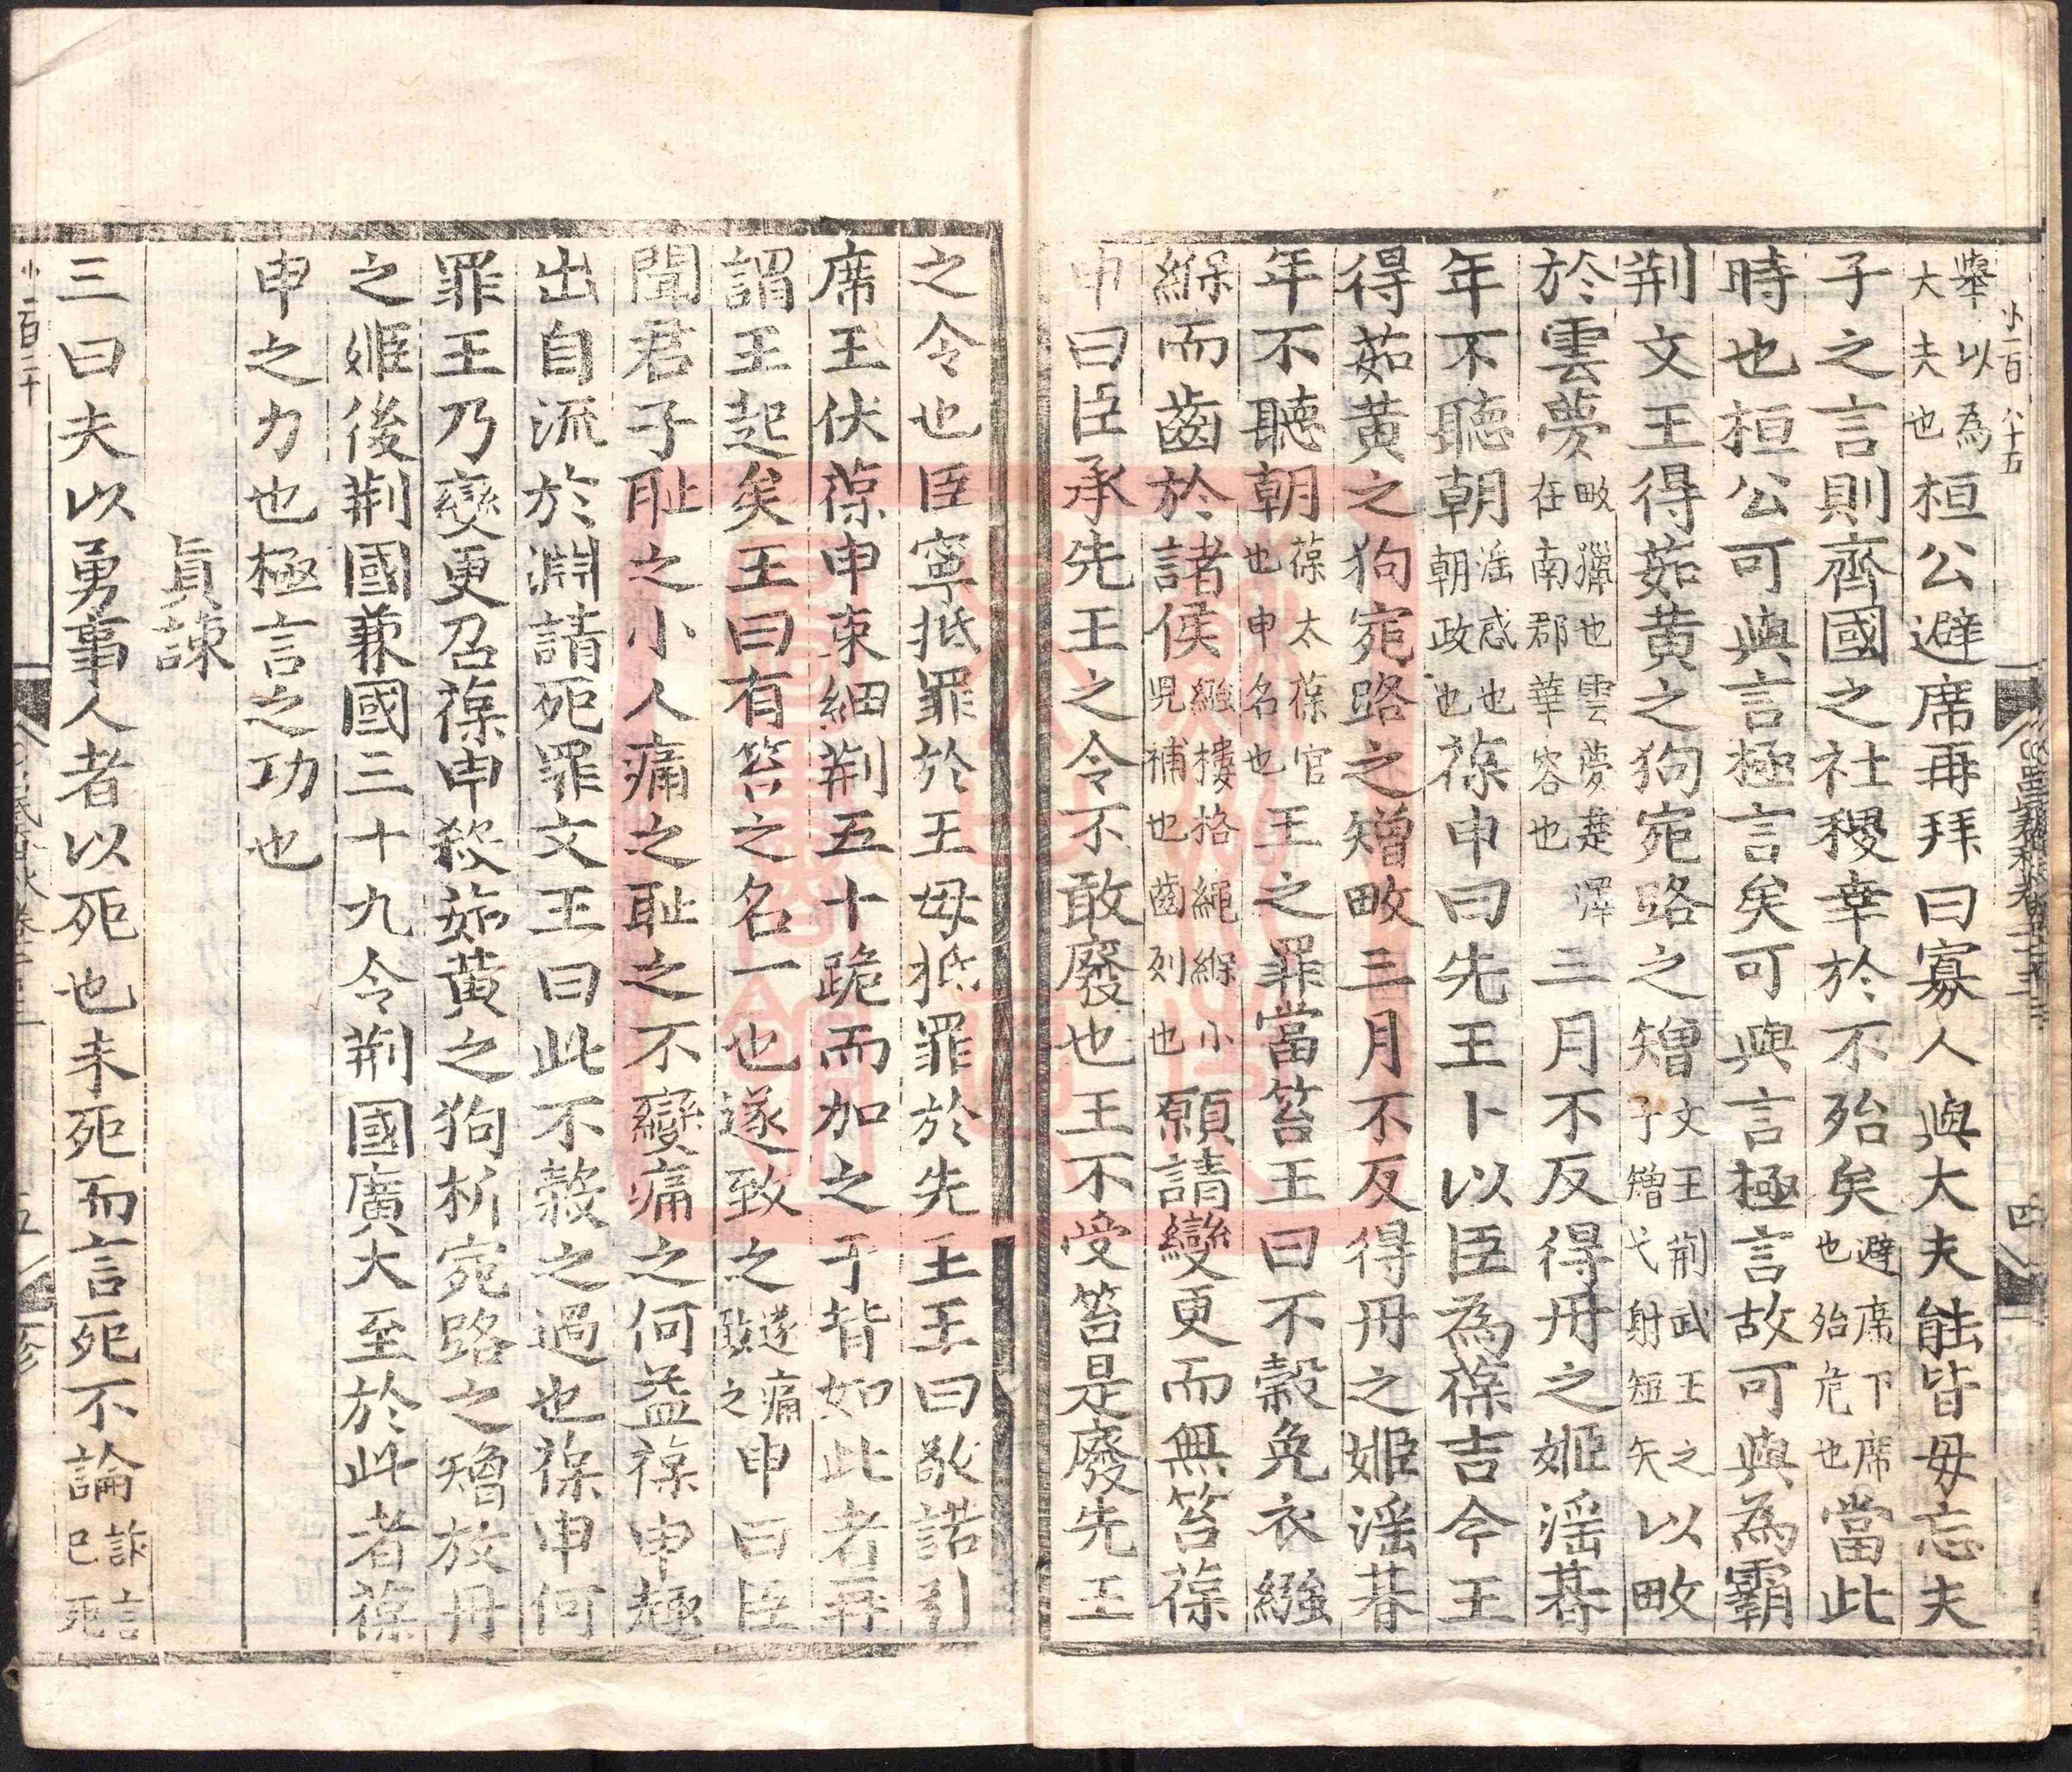 舉以為大夫也桓公避席再拜曰寡人與大夫能皆毋忘夫
子之言則齊國之社稷幸於不殆矣避席下席也殆危也當此
時也桓公可與言極言矣可與言極言故可與為霸
荆文王得茹黃之狗宛路之矰文王荆武王之子矰弋射短矢以畋
於雲夢畋獵也雲夢楚澤在南郡華容也三月不反得丹之姬淫朞
年不聽朝淫惑也朝政也葆申曰先王卜以臣為葆吉今王
得茹黃之狗宛路之矰畋三月不反得丹之姬淫朞
年不聽朝葆太葆官也申名也王之罪當笞王曰不穀免衣繈
緥而齒於諸侯繈樓格繩緥小兒補也齒列也願請變更而無笞葆
申曰臣承先王之令不敢廢也王不受笞是廢先王
之令也臣寧抵罪於王毋抵罪於先王王曰敬諾引
席王伏葆申束細荆五十跪而加之于背如此者再
謂王起矣王曰有笞之名一也遂致之遂痛致之申曰臣
聞君子恥之小人痛之恥之不變痛之何益葆申趨
出自流於淵請死罪文王曰此不穀之過也葆申何
罪王乃變更召葆申殺茹黃之狗析宛路之矰放丹
之姬後荆國兼國三十九令荆國廣大至於此者葆
申之力也極言之功也
貞諫
三曰夫以勇事人者以死也未死而言死不論訴言已死
小一百八十五
四
小二百二十
五